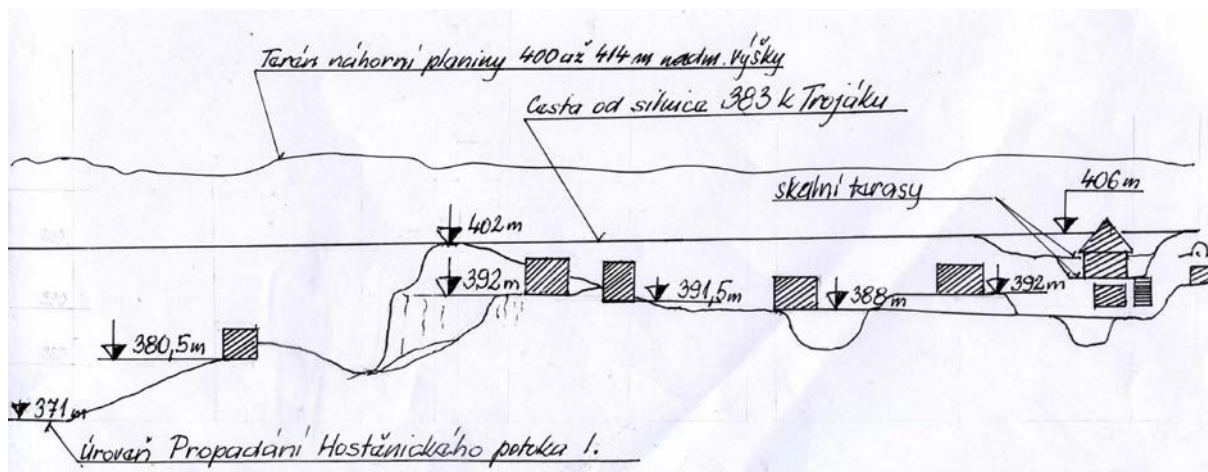 Terén náhorní planiny 400 až 414 m nadm. výšky
Cesta od silnice 383 k Trojáku
skalní terasy
406 m
402 m
392 m
391,5 m
388 m
392 m
380,5 m
371 m
Úroveň Propadání Hostěnického potoka 1.